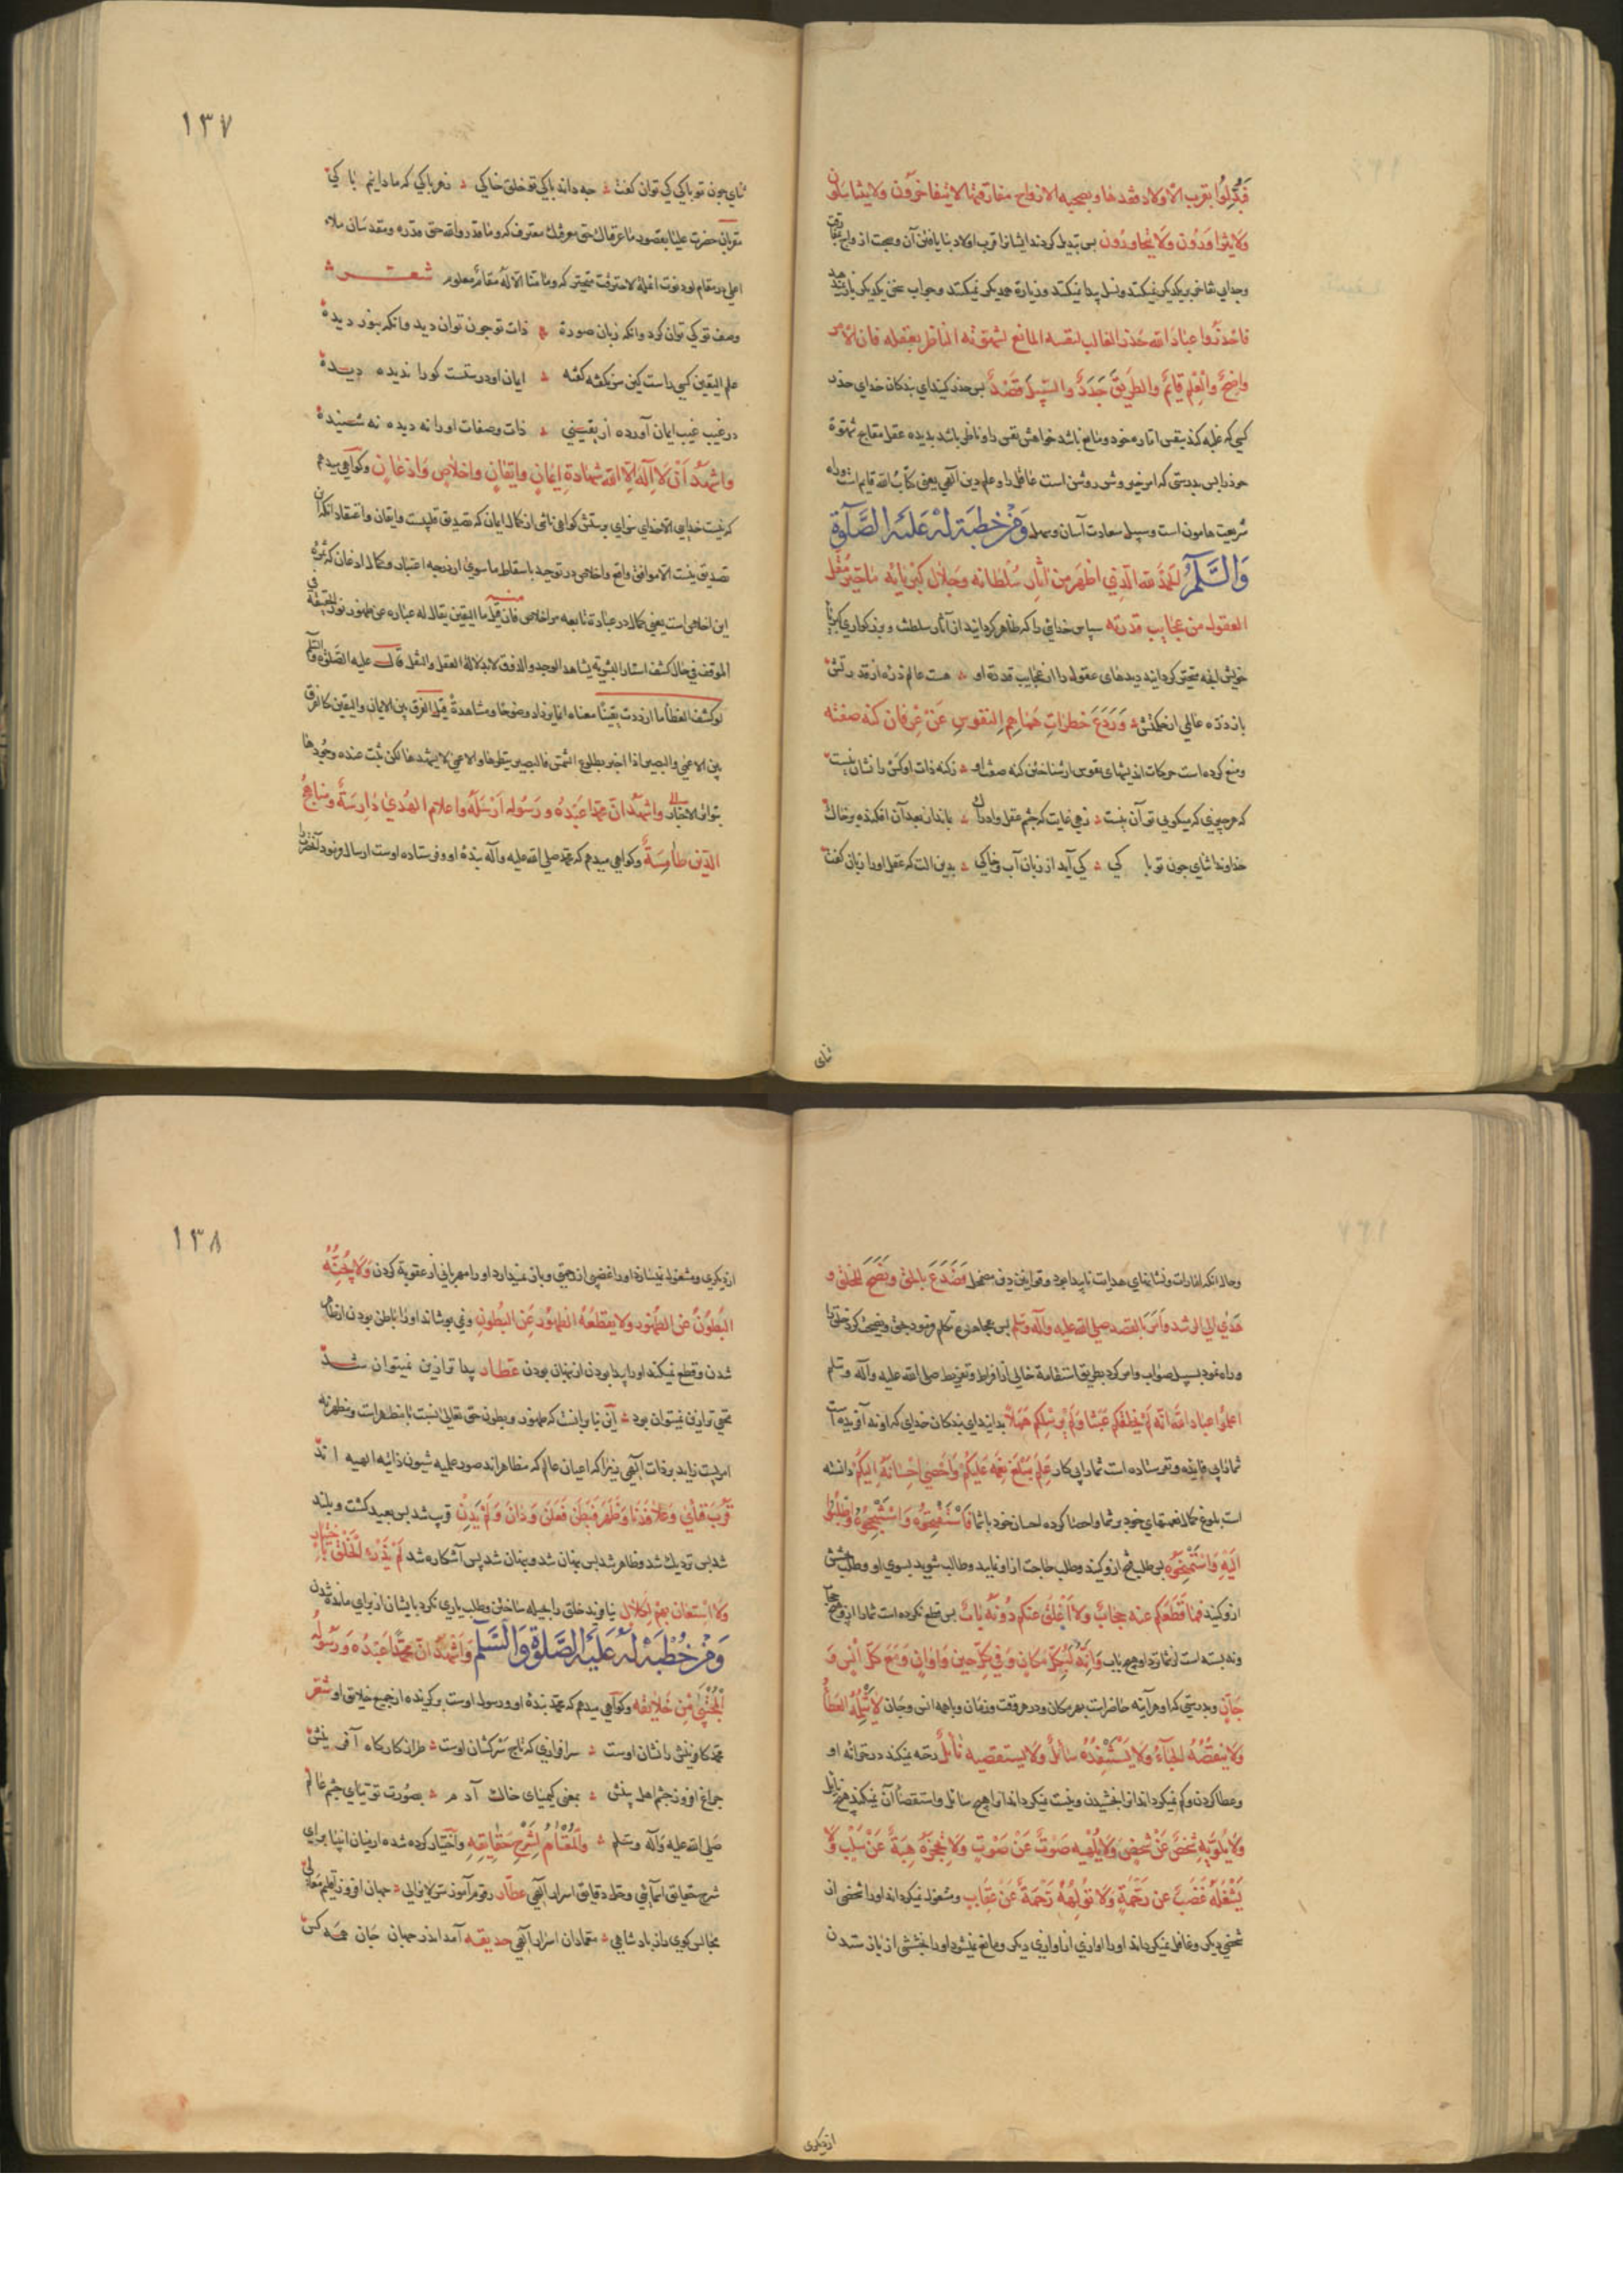 فَبُدِّلُوا بقرب الاولاد فقدها وبصحبه الازواج مفارقتها لا يتفاخرون ولا يتناسلون
ولا يتزاورون ولا يتجاورون پس تبدیل کردند ایشان قرب اولاد بنایافتن آن وصحبت ازواج
وجدایی تفاخر بر یکدیگر نمیکنند ونسل پیدا نمیکنند وزیارة همدیکر نمیکنند وجواب سخن یکدیکر باز نمیدهند
فاحذروا عباد الله حذر الغالب لنفسه المانع لشهوته الناظر بعقله فان الامر
واضح والعلم قایم والطریق جدد والسبیل قصد پس حذر کنید ای بندکان خدای حذر
کسی که غلبه کند بنفس اماره خود ومانع باشد خواهش نفس را وناظر باشد بدیده عقل شهوة
خود را پس بدرستی که امر روشن است عاقل را وعلم دین الهی یعنی کتاب الله قایم است وراه
شریعت هامون است وسبیل سعادت آسان وسهل وَمِنْ خُطبَة لَه عَلَيْه الصَّلٰوة
وَالسَّلٰم الحمد لله الذی اظهر من آثار سلطانه وجلال کبریائه ما حیر مقل
العقول من عجایب قدرته سپاس خدای را که ظاهر کردانید از آثار سلطنت وبزرکواری کبریا
خویش آنچه متحیر کردانید دیدهای عقول را از عجایب قدرة او هست عالم ذره از قدرتش
باز ذره عالمی از حکمتش وَرَدَعَ خطرات هماهم النفوس عن عرفان کنه صفته
ومنع کرده است حرکات اندیشهای نفوس از شناختن کنه صفة او ز کنه ذات او کس را نشان نیست
که هر چیزی که میکویی تو آن نیست زهی غایت که چشم عقل وادراک بماند از بعد آن افکنده بر خاک
خداوندا ثنای چون تو پا کی کی آید از زبان آب وخاکی بدین الت که عقل او را زبان کفت
ثنای
۱۳۷
ثنای چون تو پاکی کی توان کفت چه داند پاکی تو خلق خاکی تو هر پاکی که ما دانیم پا کی
مقربان حضرت علیا بقصور ما عرفناک حق معرفتک معترف که وما قدروا الله حق قدره ومقدسان ملاء
اعلی در مقام لو دنوت انملة لاحترقت متحیر که وما منا الا له مقام معلوم شعر
وصف تو کی توان کرد وانکه زبان صورة ذات تو چون توان دید وانکه بنور دیده
علم الیقین کسی راست کین سر نکفته کفته ایمان او درستست کو را ندیده دیده
در غیب غیب ایمان آورده از یقینی ذات وصفات او را نه دیده نه شنیده
واشهد ان لا اله الا الله شهادة ایمان وایقان واخلاص واذعان وکواهی میدهم
که نیست خدایی الا خدای سزای پرستش کواهی ناشی از کمال ایمان که تصدیق قلبیست وایقان واعتقاد آنکه آن
تصدیق نیست الا موافق واقع واخلاص در توحید باسقاط ما سوی از درجه اعتبار وکمال اذعان که ثمرة
این اخلاص است یعنی کمال در عبادة تابعه مر اخلاص فان قیل ما الیقین یقال له عباره عن ظهور نور الحقیقة
الموقف فی حال کشف استار البشریة یشاهد الوجد والذوق لا بدلالة العقل والنقل قال علیه الصلوة والسلم
لو کشف الغطا ما ازددت یقینا معناه انما یزداد وضوحا ومشاهدة قیل الفرق بین الایمان والیقین کالفرق
بین الاعمی والبصیر اذا اخبر بطلوع الشمس فالبصیر ینظرها والاعمی لا یشهدها لکن ثبت عنده وجودها
بتواتر الاخبار واشهد ان محمدا عبده ورسوله ارسله واعلام الهدی دارسة ومناهج
الدین طامسة وکواهی میدهم که محمد صلی الله علیه وآله بنده او وفرستاده اوست ارسال فرمود آنحضرت را
وحال آنکه امارات ونشانهای هدایت ناپیدا بود وقوانین دین مضمحل فصدع بالحق ونصح للخلق و
هدی الی الرشد وامر بالقصد صلی الله علیه وآله وسلم پس بمجاهره تکلم فرمود بحق ونصیحت کرد خلق را
وراه نمود بسبیل صواب وامر کرد بطریق استقامة خالی از افراط وتفریط صلی الله علیه وآله وسلم
اعلموا عباد الله انه لم یخلقکم عبثا ولم یرسلکم هملا بدانید ای بندکان خدای که او نه آفریده است
شما را بی فایده ونفرستاده است شما را بی کار علم مبلغ نعمه علیکم واحصی احسانه الیکم دانسته
است بلوغ کمال نعمتهای خود بر شما واحصا کرده احسان خود با شما فاستفتحوه واستنجحوه واطلبوا
الیه واستمنحوه پس طلب فتح ازو کنید وطلب حاجت از او نمایید وطالب شوید بسوی او وطلب بخشش
ازو کنید فما قطعکم عنه حجاب ولا اغلق عنکم دونه باب پس قطع نکرده است شما را ازو هیچ حجاب
ونه بسته است از شما نزد او هیچ باب وانه لبکل مکان وفی کل حین واوان ومع کل انس و
جان وبدرستی که او هر آینه حاضر است بهر مکان ودر هر وقت وزمان وبا همه انس وجان لا یثلمه العطا
ولا ینقصه الحباء ولا یستنفده سائل ولا یستقصیه نائل رخنه نمیکند در خزانه او
وعطا کردن وکم نمیکرداند او را بخشیدن ونیست نمیکرداند او را هیچ سائل واستقصا آن نمیکند هیچ نایل
ولا یلویه شخص عن شخص ولا یلهیه صوت عن صوت ولا تحجزه هبة عن سلب ولا
یشغله غضب عن رحمة ولا تولهه رحمة عن عقاب ومشغول نمیکرداند او را شخصی از
شخصی دیکر وغافل نمیکرداند او را آوازی از آوازی دیکر ومانع نمیشود او را بخششی از باز ستدن
از دیکری
۱۳۸
از دیکری ومشغول نمیسازد او را غضبی از رحمتی وباز نمیدارد او را مهربانی از عقوبة کردن ولا یجنه
البطون عن الظهور ولا یقطعه الظهور عن البطون ونمی پوشاند او را باطن بودن از ظاهر
شدن وقطع نمیکند او را پیدا بودن از نهان بودن عطار پیدا تر ازین نمیتوان شد
مخفی تر ازین نمیتوان بود این بنا برانست که ظهور وبطون حق تعالی نسبت با مظاهر است ومظهریه
امریست زاید بر ذات الهی زیرا که اعیان عالم که مظاهر اند صور علمیه شیون ذاتیه الهیه اند
قرب فنای وعلا فدنا وظهر فبطن وبطن فعلن ودان ولم یدن قریب شد پس بعید کشت وبلند
شد پس نزدیک شد وظاهر شد پس پنهان شد وپنهان شد پس آشکاره شد لم یذرء الخلق باحتیال
ولا استعان بهم لکلال نیافرید خلق را بحیله ساختن وطلب یاری نکرد بایشان از برای مانده شدن
وَمِنْ خُطْبَةٍ لَهُ عَلَيْهِ الصَّلٰوةُ وَالسَّلٰم واشهد ان محمدا عبده ورسوله
المجتبی من خلایقه وکواهی میدهم که محمد بنده او ورسول اوست برکزیده از جمیع خلایق او شعر
محمد کافرینش را نشان اوست سرافرازی که تاج سرکشان اوست طراز کارکاه آفرینش
چراغ افروز چشم اهل بینش بمعنی کیمیای خاک آدم بصورت توتیای چشم عالم
صلی الله علیه وآله وسلم والمعتام لشرح حقایقه واختیار کرده شده از میان انبیا برای
شرح حقایق اشیا وحل دقایق اسرار الهی عطار رقوم آموز سر لایزالی جهان افروز اقلیم معالی
مجالس کوی راز پادشاهی معمادان اسرار الهی حدیقه آمد اندر جهان جان همه کس